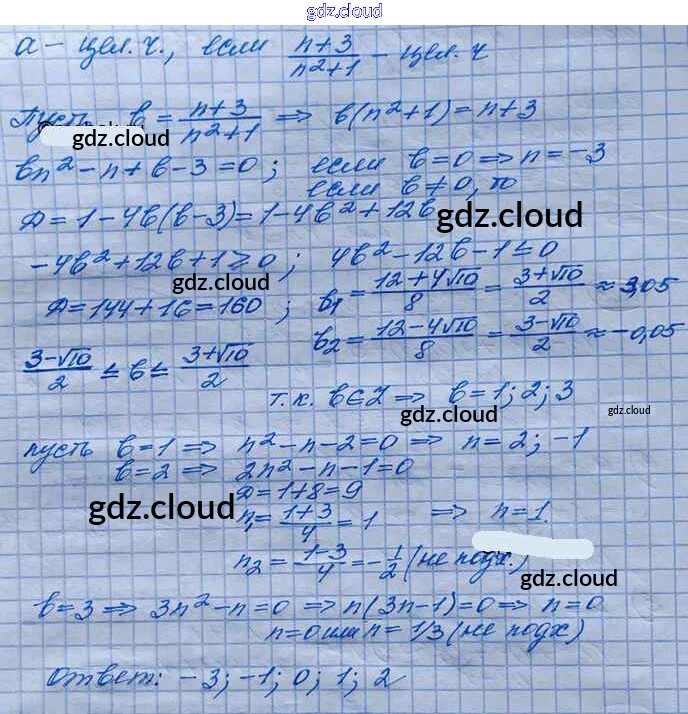 gdz.cloud
a - цел. ч., если (n+3)/(n²+1) - цел. ч
Пусть b = (n+3)/(n²+1) ⇒ b(n²+1) = n+3
gdz.cloud
bn² - n + b - 3 = 0; если b=0 ⇒ n = -3
если b ≠ 0, то
Д = 1 - 4b(b-3) = 1 - 4b² + 12b
gdz.cloud
-4b² + 12b + 1 ≥ 0; 4b² - 12b - 1 ≤ 0
Д = 144 + 16 = 160; b₁ = (12+4√10)/8 = (3+√10)/2 ≈ 3,05
gdz.cloud
b₂ = (12-4√10)/8 = (3-√10)/2 ≈ -0,05
(3-√10)/2 ≤ b ≤ (3+√10)/2
т.к. b∈Z ⇒ b = 1; 2; 3
gdz.cloud
gdz.cloud
пусть b=1 ⇒ n² - n - 2 = 0 ⇒ n = 2; -1
b=2 ⇒ 2n² - n - 1 = 0
Д = 1+8 = 9
gdz.cloud
n₁ = (1+3)/4 = 1 ⇒ n = 1.
n₂ = (1-3)/4 = -1/2 (не подх.)
gdz.cloud
b=3 ⇒ 3n² - n = 0 ⇒ n(3n-1) = 0 ⇒ n = 0
n=0 или n = 1/3 (не подх)
gdz.cloud
Ответ: -3; -1; 0; 1; 2
gdz.cloud